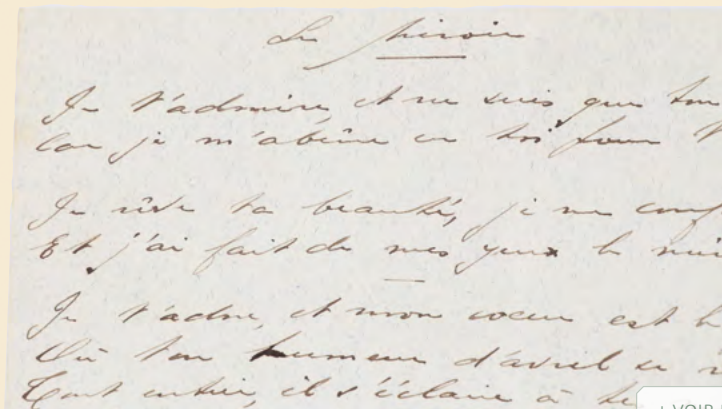 Le Miroir
Je t'admire, et ne suis que ton
Car je m'abîme en toi pour t
Je rêve ta beauté, je me conf
Et j'ai fait de mes yeux le mir
Je t'adore, et mon coeur est le
Où ton humeur d'avril se
Tout entier, il s'éclaire à
+ VOIR